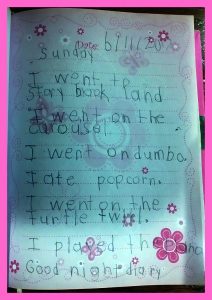 Date 6/11/20
Sunday
I went to
story book land.
I went on the
carousel.
I went on dumbo.
I ate popcorn.
I went on the
turtle twirl.
I played th
Good night diary